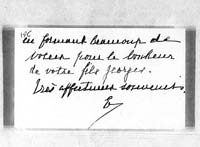 en formant beaucoup de
voeux pour le bonheur
de votre fils georges.
Très affectueux souvenirs.